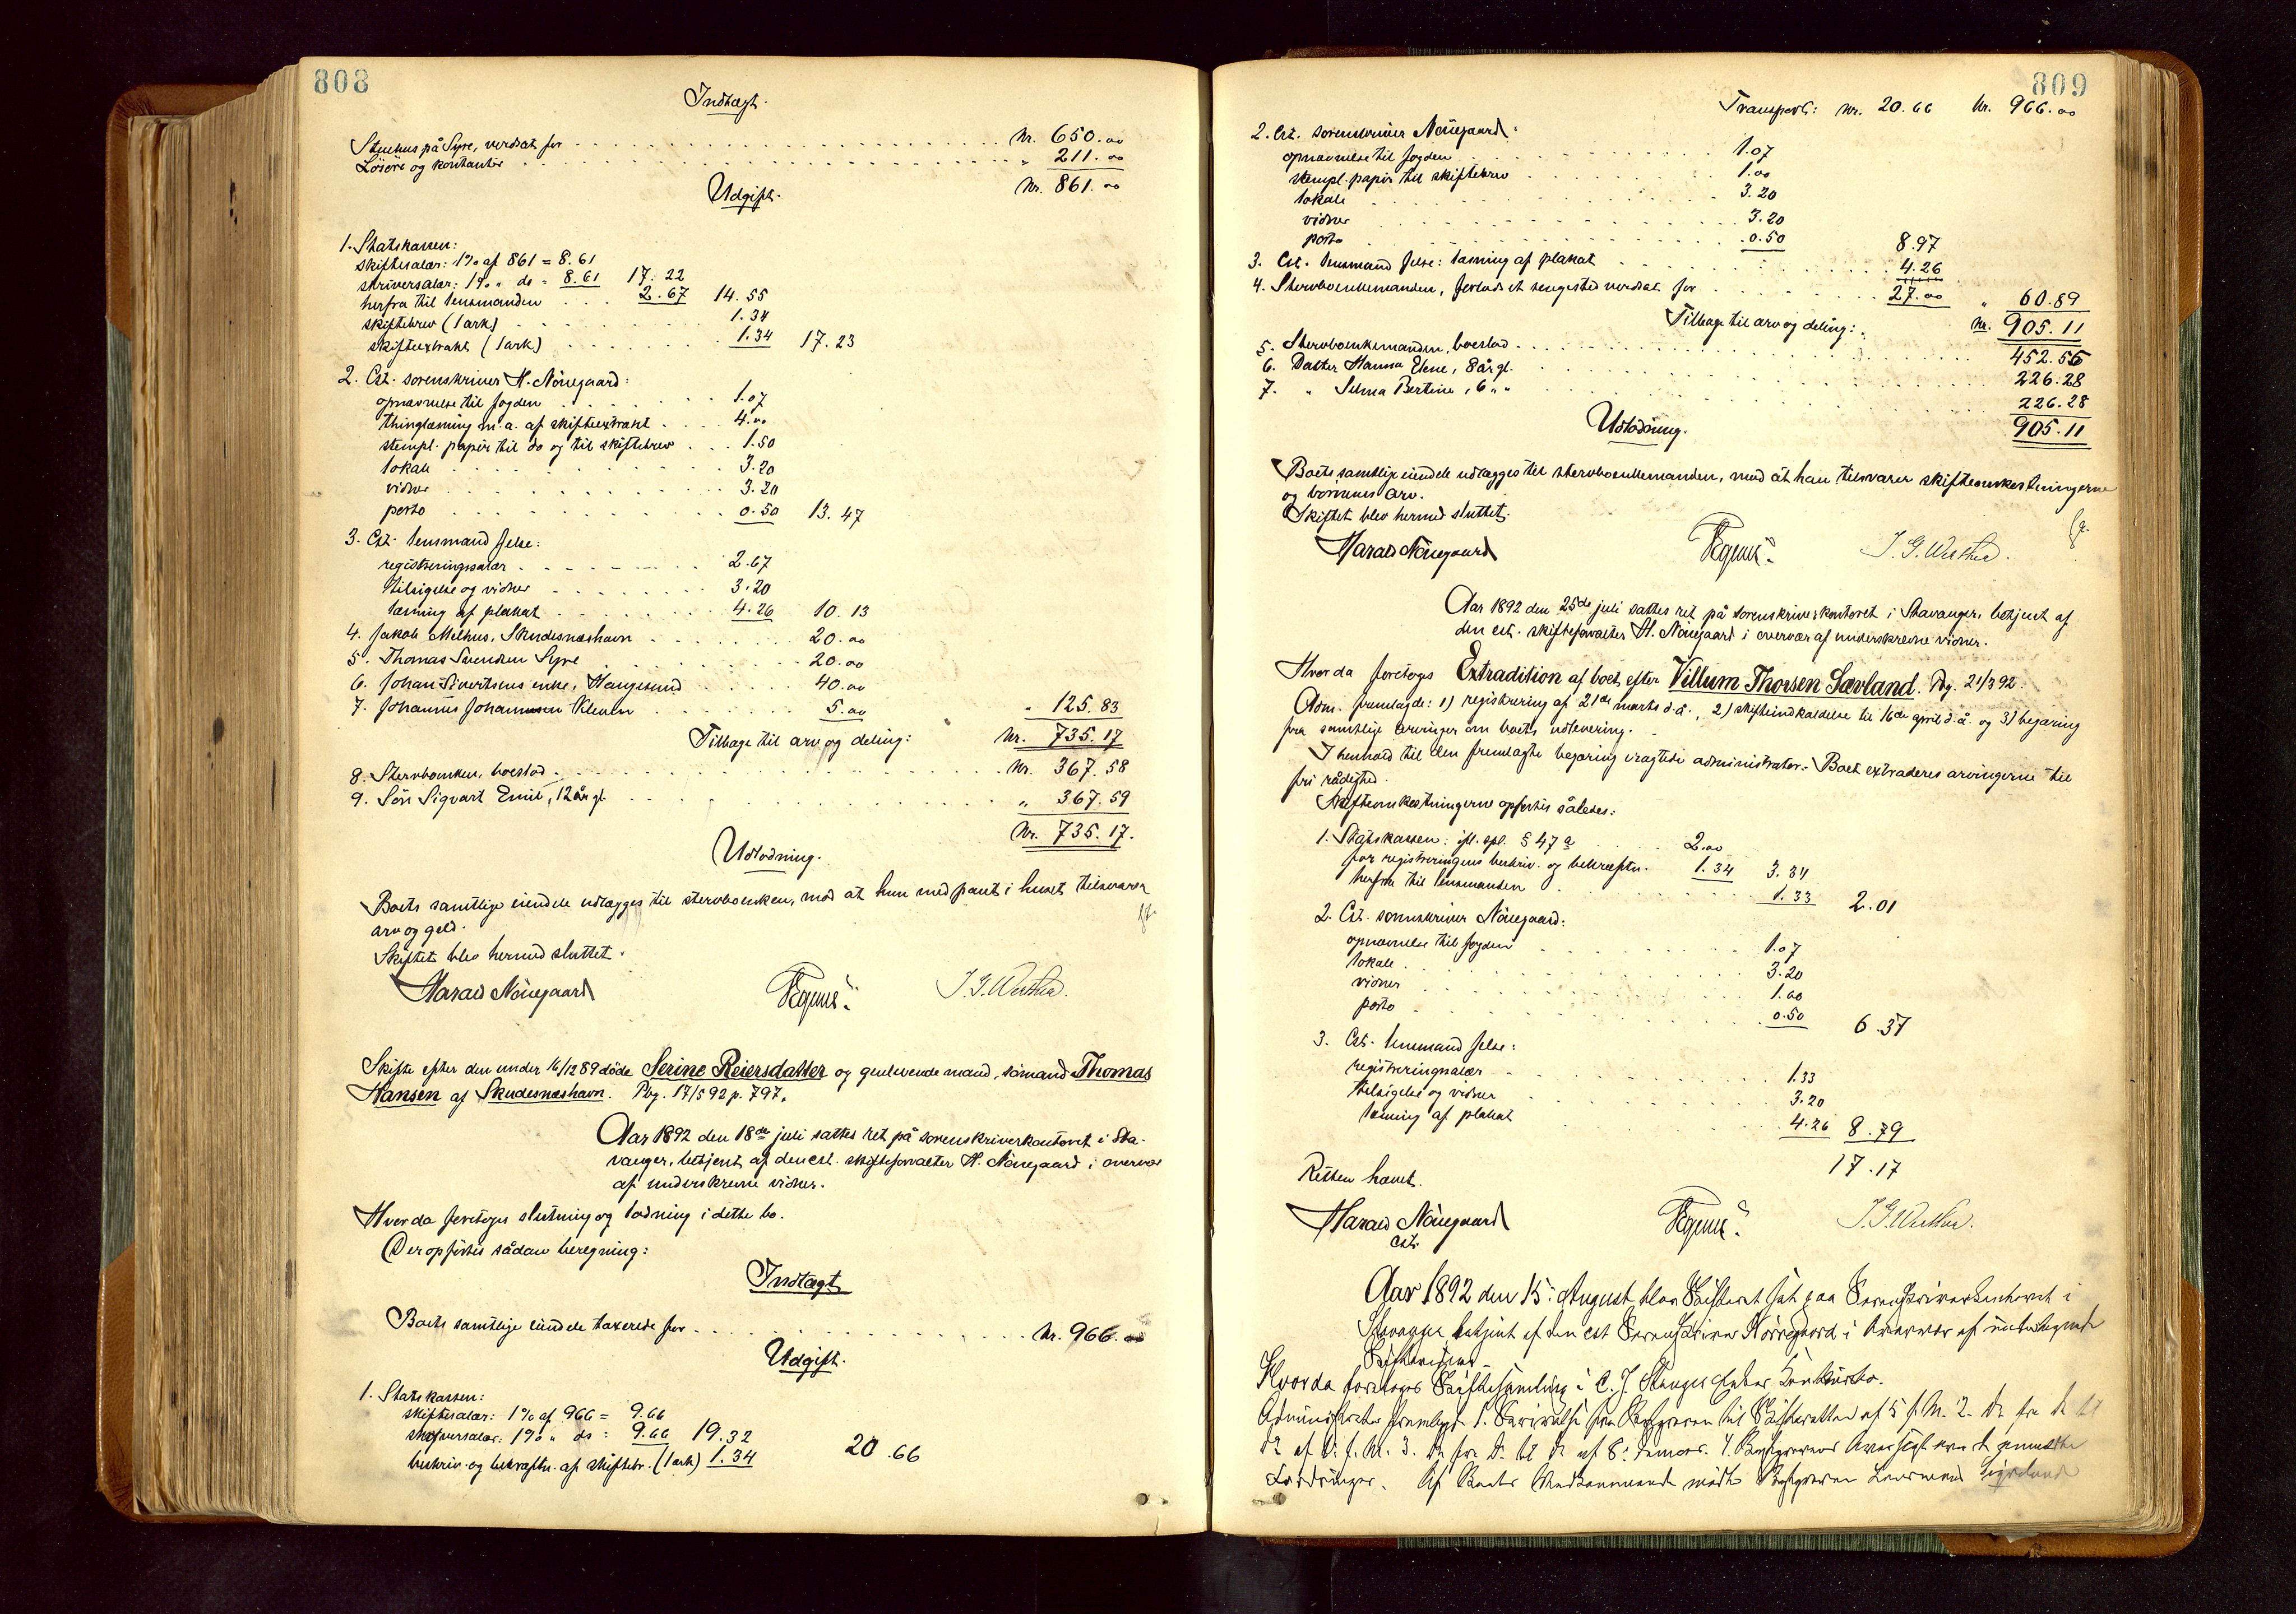 808
Indtægt.
Stuehus på Syre, verdsat for Kr. 650.00
Lösöre og kontanter " 211.00
Kr. 861.00
Udgift.
1. Statskassen:
skiftesalær: 1% af 861 = 8.61
skriversalær: 1% " do = 8.61 17.22
herfra til lensmanden 2.67 14.55
skiftebrev (1 ark) 1.34
skifteextrakt (1 ark) 1.34 17.23
2. Cst. sorenskriver H. Nörregaard:
opnævnelse til fogden 1.07
thinglæsning m.a. af skifteextrakt 4.00
stempl. papir til do og til skiftebrev 1.50
lokale 3.20
vidner 3.20
porto 0.50 13.47
3. Cst. lensmand Jelse:
registreringssalær 2.67
tilsigelse og vidner 3.20
læsning af plakat 4.26 10.13
4. Jakob Melhus, Skudesneshavn 20.00
5. Thomas Svendsen Syre 20.00
6. Johan Sivertsens enke, Haugesund 40.00
7. Johannes Johannesen Kleven 5.00 " 125.83
Tilbage til arv og deling: Kr. 735.17
8. Stervboenken, boeslod Kr. 367.58
9. Sön Sigvart Emil, 12 år gl. " 367.59
Kr. 735.17.
Udlodning.
Boets samtlige eiendele udlægges til stervboenken, mod at hun med pant i huset tilsvarer
arv og geld.
Skiftet blev hermed sluttet.
Harald Nörregaard J. G. Werther.
Skifte efter den under 16/12 89 döde Serine Reiersdatter og gjenlevende mand, sömand Thomas
Hansen af Skudesneshavn. Pbg. 17/5 92 p. 797.
Aar 1892 den 18de juli sattes ret på sorenskriverkontoret i Sta-
vanger, betjent af den cst. skifteforvalter H. Nörregaard i overvær
af underskrevne vidner.
Hvorda foretoges slutning og lodning i dette bo.
Der opförtes sådan beregning:
Indtægt
Boets samtlige eiendele taxerede for Kr. 966.00
Udgift.
1. Statskassen:
skiftesalær: 1% af 966 = 9.66
skriversalær: 1% " do = 9.66 19.32
beskriv. og bekræftn. af skiftebr. (1 ark) 1.34 20.66
809
Transport: Kr. 20.66 Kr. 966.00
2. Cst. sorenskriver Nörregaard:
opnævnelse til fogden 1.07
stempl. papir til skiftebrev 1.00
lokale 3.20
vidner 3.20
porto 0.50 8.97
3. Cst. lensmand Jelse: læsning af plakat 4.26
4. Stervboenkemanden, forlods et sengested verdsat for 27.00 " 60.89
Tilbage til arv og deling: Kr. 905.11
5. Stervboenkemanden, boeslod 452.55
6. Datter Hanna Elene, 8 år gl. 226.28
7. " Selma Bertine, 6 " " 226.28
905.11
Udlodning.
Boets samtlige eiendele udlægges til stervboenkemanden, mod at han tilsvarer skifteomkostningerne
og börnenes arv.
Skiftet blev hermed sluttet.
Harald Nörregaard J. G. Werther.
Aar 1892 den 25de juli sattes ret på sorenskriverkontoret i Stavanger, betjent af
den cst. skifteforvalter H. Nörregaard i overvær af underskrevne vidner.
Hvorda foretoges Extradition af boet efter Villum Thorsen Sævland. Pbg. 21/3 92.
Adm. fremlagde: 1) registrering af 21de marts d.å., 2) skifteindkaldelse til 16de april d.å. og 3) begjæring
fra samtlige arvinger om boets udlevering.
I henhold til den fremlagte begjæring eragtede administrator: Boet extraderes arvingerne til
fri rådighed.
Skifteomkostningerne opförtes således:
1. Statskassen: ifl. spl. § 47 a 2.00
for registreringens beskriv. og bekræftn. 1.34 3.34
herfra til lensmanden 1.33 2.01
2. Cst. sorenskriver Nörregaard:
opnævnelse til fogden 1.07
lokale 3.20
vidner 1.60
porto 0.50 6.37
3. Cst. lensmand Jelse:
registreringssalær 1.33
tilsigelse og vidner 3.20
læsning af plakat 4.26 8.79
17.17
Retten hævet.
Harald Nörregaard J. G. Werther.
cst.
Aar 1892 den 15. August blev Skifteret sat paa Sorenskriverkontoret i
Stavanger betjent af den cst Sorenskriver Nörregaard i Overvær af undertegnede
Skiftevidner
Hvorda foretoges Skiftesamling i C. J. Stangelands Konkursbo.
Administrator fremlagde 1. Skrivelse fra Bobestyreren til Skifteretten af 5 f. M. 2. Do fra Do til
Do af f. M. 3. Do fra Do til Do af 8. 4. Bobestyrerens Oversigt over de anmeldte
Fordringer. Af Boets Vedkommende mödte Bobestyreren Lensmand